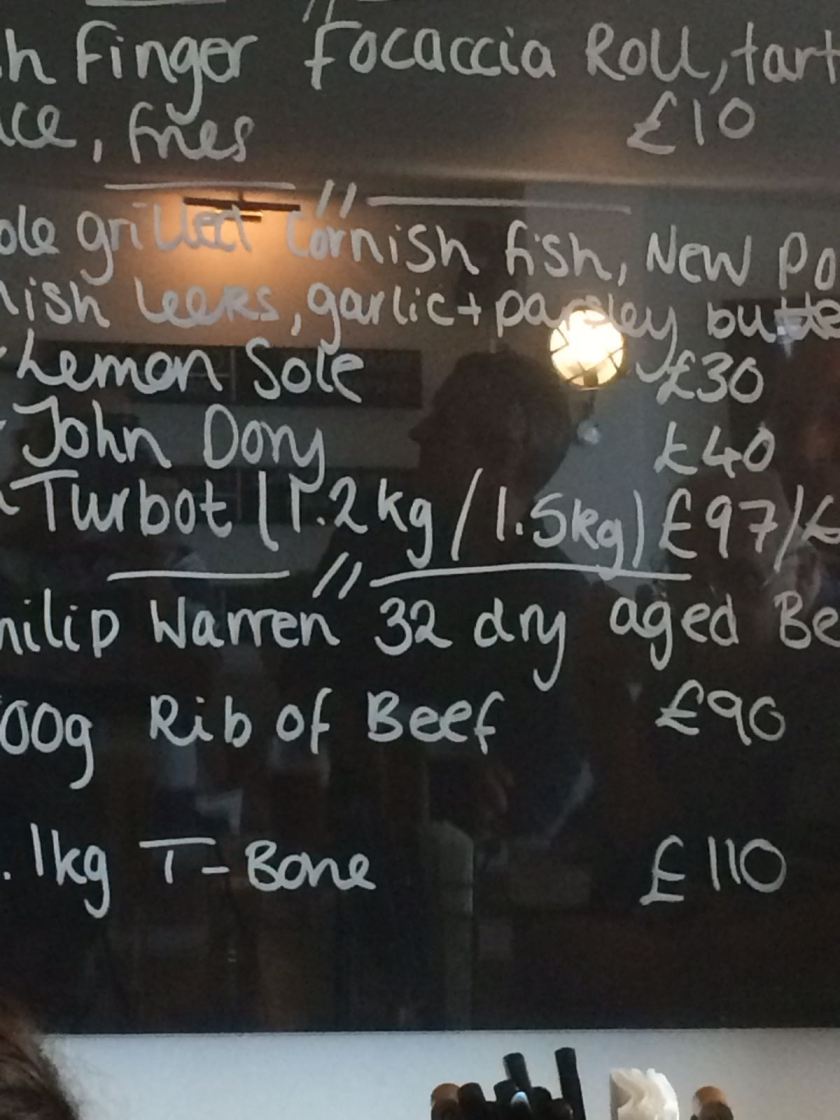 h Finger Focaccia Roll, tart
ce, fries £10
ole grilled Cornish fish, New Po
nish leeks, garlic + parsley butte
Lemon Sole £30
John Dory £40
Turbot (1.2kg / 1.5kg) £97/£
hilip Warren 32 dry aged Be
00g Rib of Beef £90
. 1kg T-Bone £110